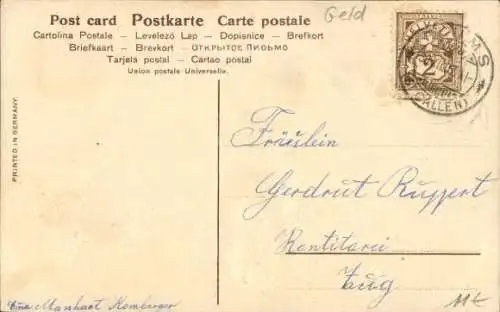 Post card Postkarte Carte postale
Geld
Cartolina Postale – Levelező Lap – Dopisnice – Brefkort
Briefkaart – Brevkort – Открытое письмо
Tarjeta postal – Cartao postal
Union postale Universelle.
HELVETIA
2
GALLEN
PRINTED IN GERMANY.
Fräulein
Gerdrut Ruppert
Rentitarei
Zug
Manhart Homberger